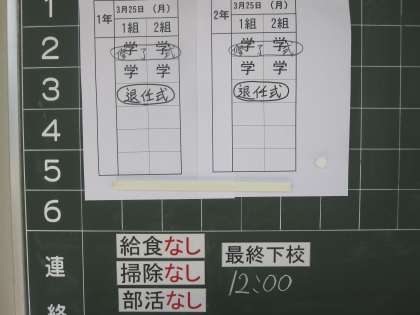 1
2
3
4
5
6
連
絡
1年
3月25日 (月)
1組 2組
学 学
修了式
学 学
退任式
2年
3月25日 (月)
1組 2組
学 学
修了式
学 学
退任式
給食なし
掃除なし
部活なし
最終下校
12:00